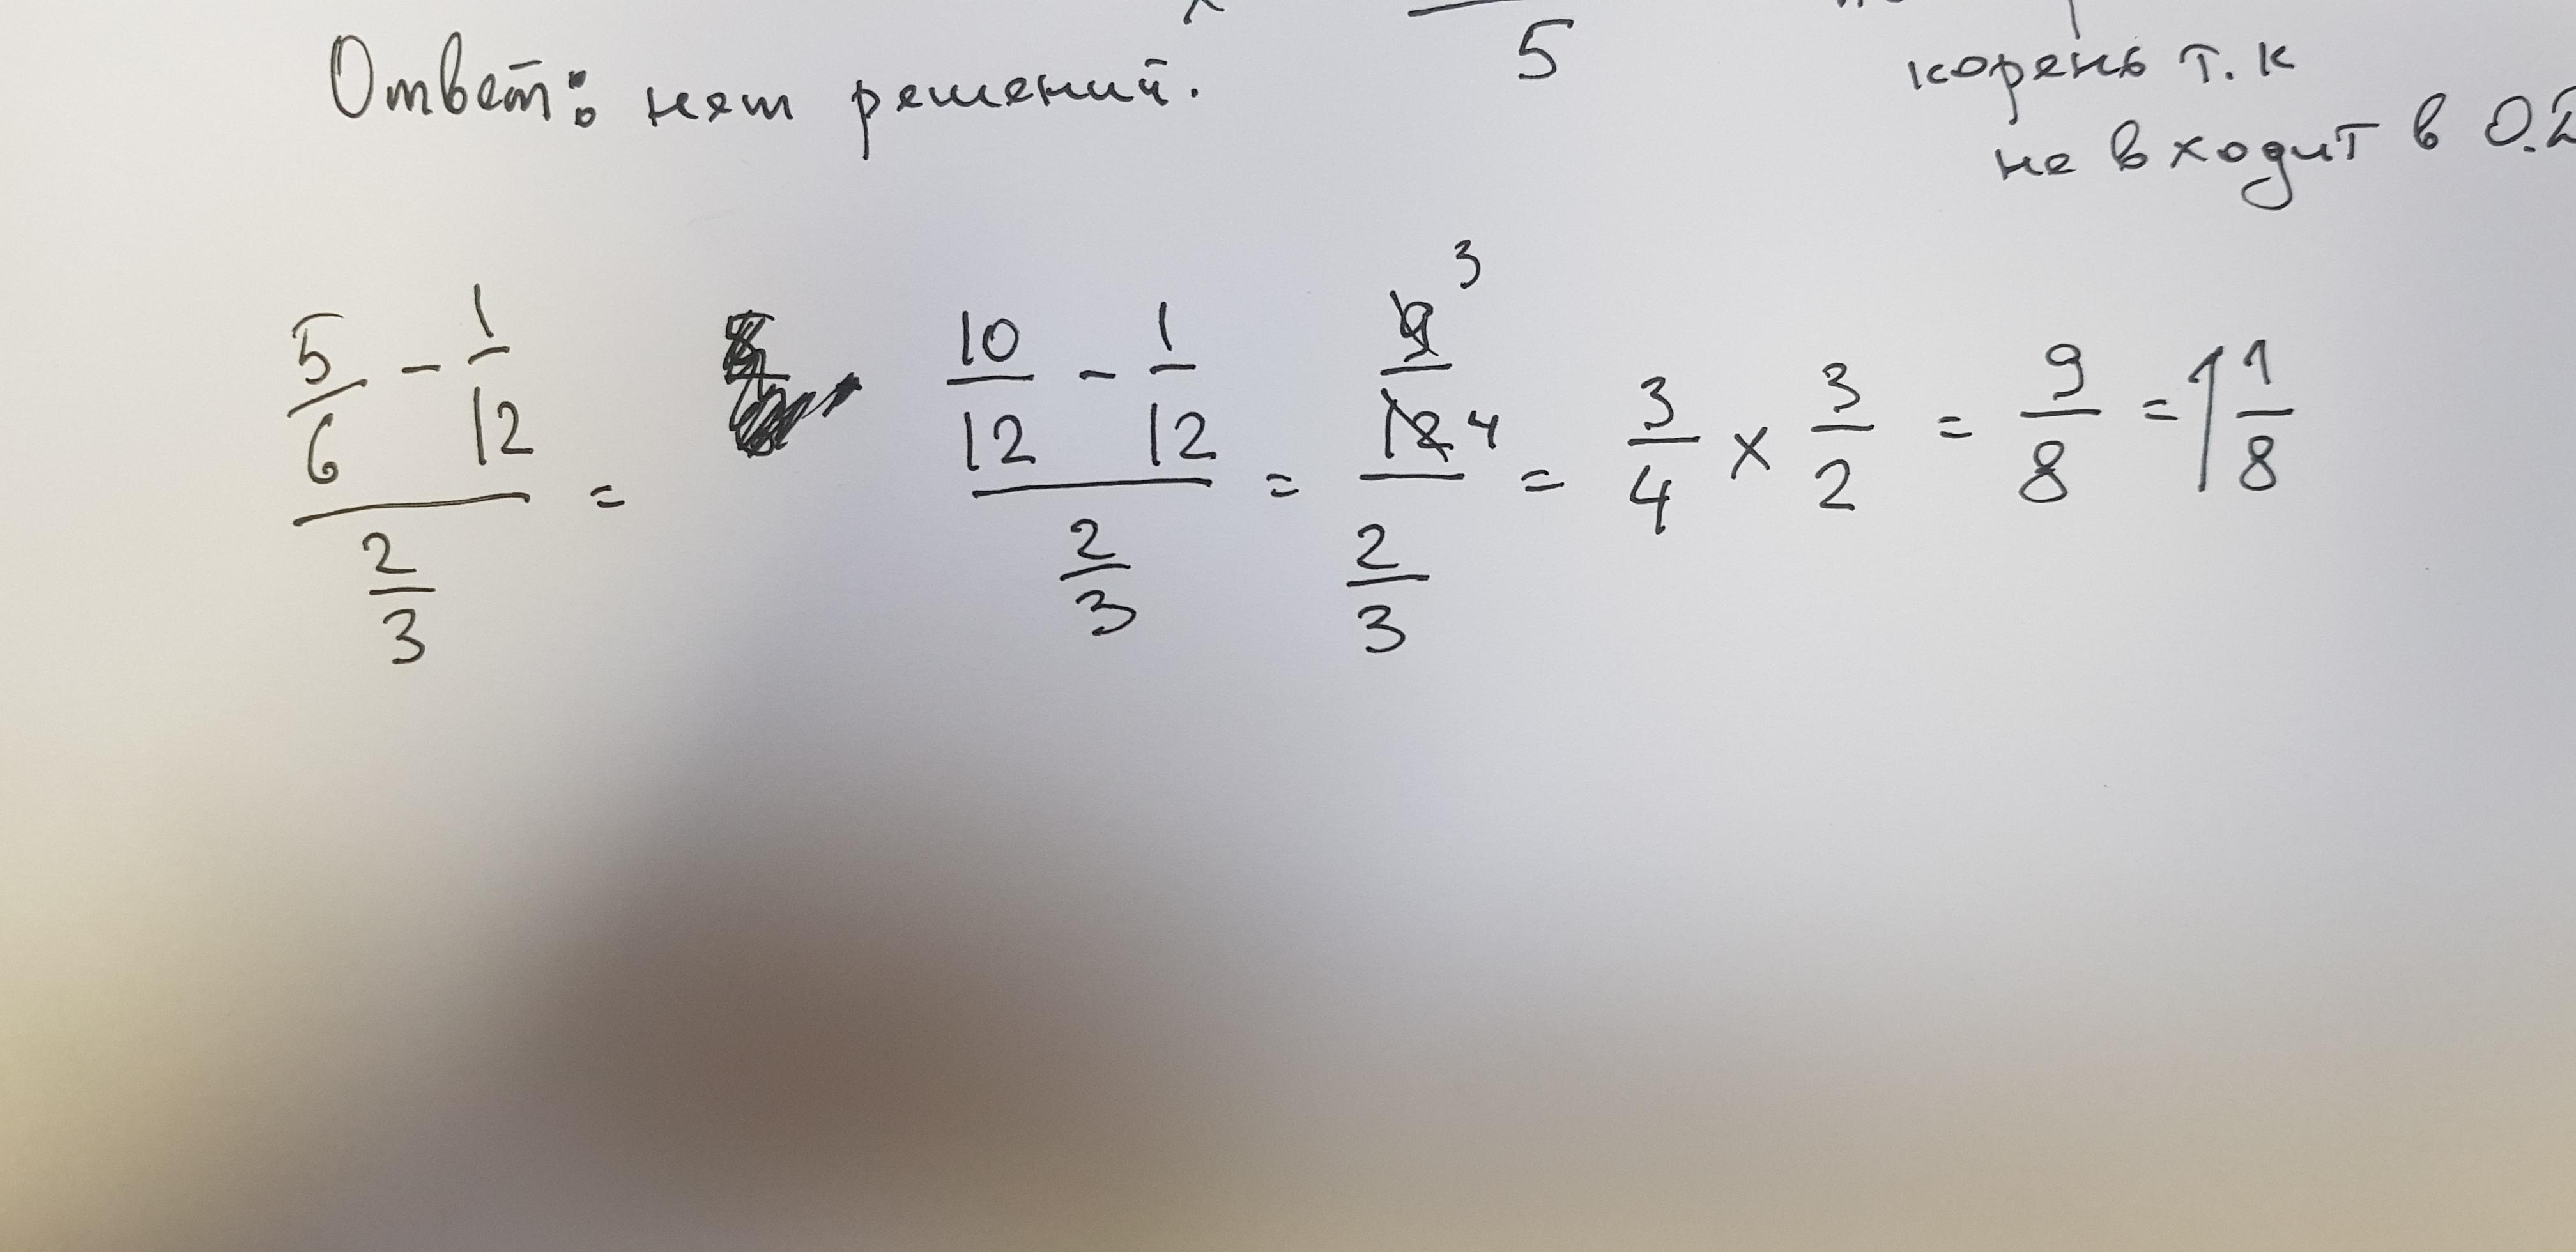 5
Ответ: нет решений.
корень т.к
не входит в О.
5/6 - 1/12 / 2/3 = 10/12 - 1/12 / 2/3 = 9 3 / 12 4 / 2/3 = 3/4 x 3/2 = 9/8 = 1 1/8